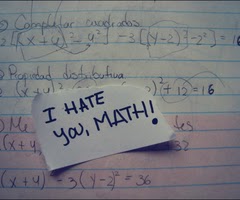 1) Completar cuadrados
[(x+4)²-4²] -3[(y-2)²-2²] = 16
2) Propiedad distributiva
)²+12 = 16
I HATE
you, MATH!
(x+4
32
(x+4) -3(y-2)² = 36